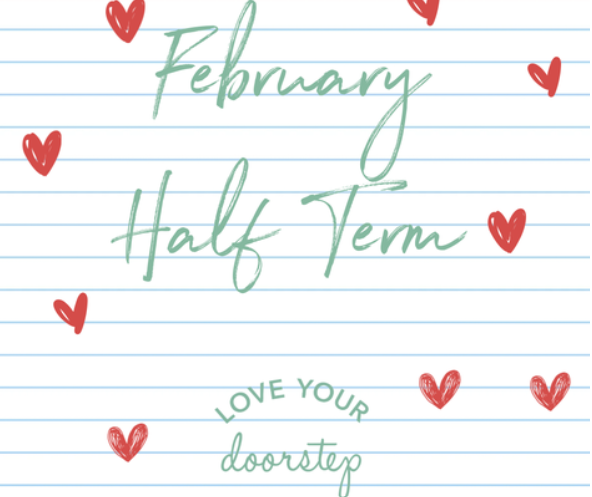 February
Half Term
LOVE YOUR
doorstep